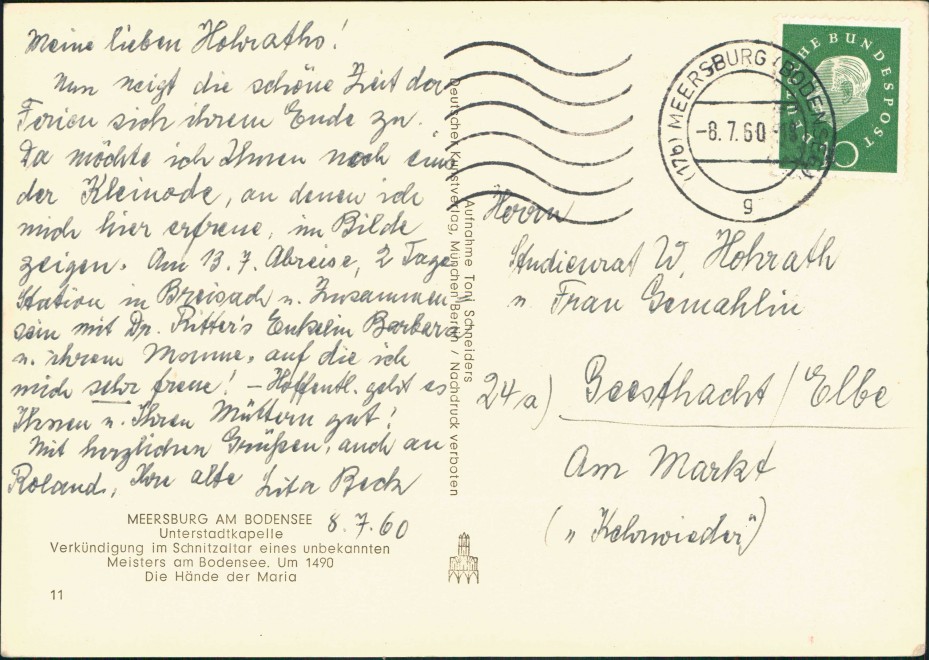 Meine lieben Hohraths!
Nun neigt die schöne Zeit der
Ferien sich ihrem Ende zu.
Da möchte ich Ihnen noch eins
der Kleinode, an denen ich
mich hier erfreue, im Bilde
zeigen. Am 13.7. Abreise, 2 Tage
Station in Breisach u. Zusammen-
sein mit Dr. Ritter's Enkelin Barbara
u. ihrem Manne, auf die ich
mich sehr freue! – Hoffentl. geht es
Ihnen u. Ihren Müttern gut!
Mit herzlichen Grüßen, auch an
Roland, Ihre alte Beck
8.7.60
MEERSBURG AM BODENSEE
Unterstadtkapelle
Verkündigung im Schnitzaltar eines unbekannten
Meisters am Bodensee. Um 1490
Die Hände der Maria
11
Aufnahme Toni Schneiders
Deutscher Kunstverlag, München Berlin / Nachdruck verboten
(17b) MEERSBURG (BODENSEE)
-8.7.60
g
DEUTSCHE BUNDESPOST
10
Herrn
Studienrat W. Hohrath
u. Frau Gemahlin
24a) Geesthacht/Elbe
Am Markt
(„Kehrwieder")